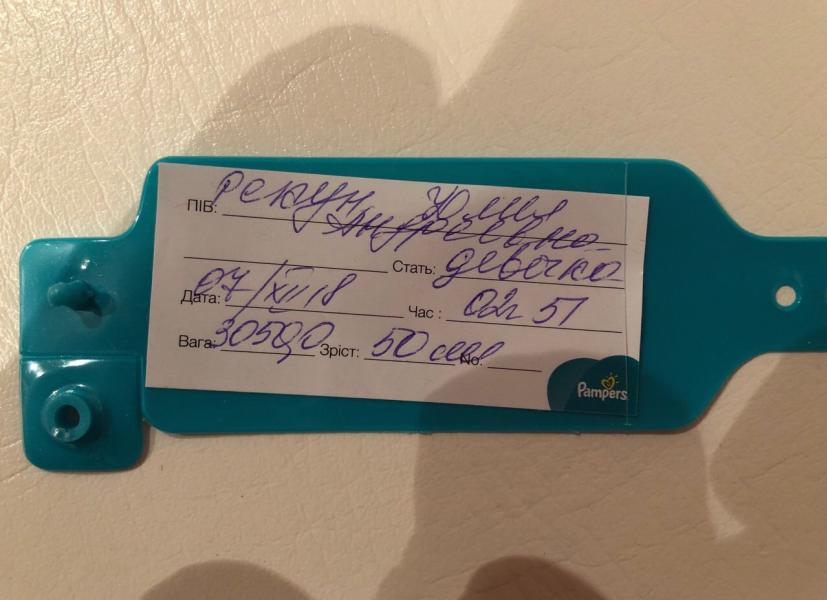 ПІВ: Рекун Юлия
Андреевна
Стать: девочка
Дата: 07/XII 18 Час : 02ч 51
Вага: 3050,0 Зріст: 50 см No:
Pampers